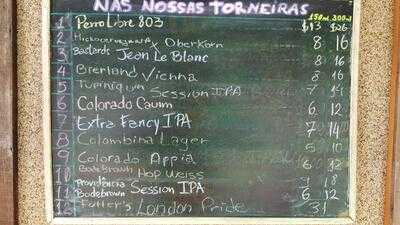 NAS NOSSAS TORNEIRAS
150ml 300ml
1 Perro Libre 803 $13 $26
2 x Oberkorn 8 16
3 Bastards Jean Le Blanc 8 16
4 Brerland Vienna 8 16
5 Tupiniquim Session IPA 7 14
6 Colorado Cauim 6 12
7 Extra Fancy IPA 7 14
8 Colombina Lager 5 10
9 Colorado Appia 6 12
10 Bode Brown Hop Weiss 9 18
11 Providência Bodebrown Session IPA 6 12
12 Fuller's London Pride 31